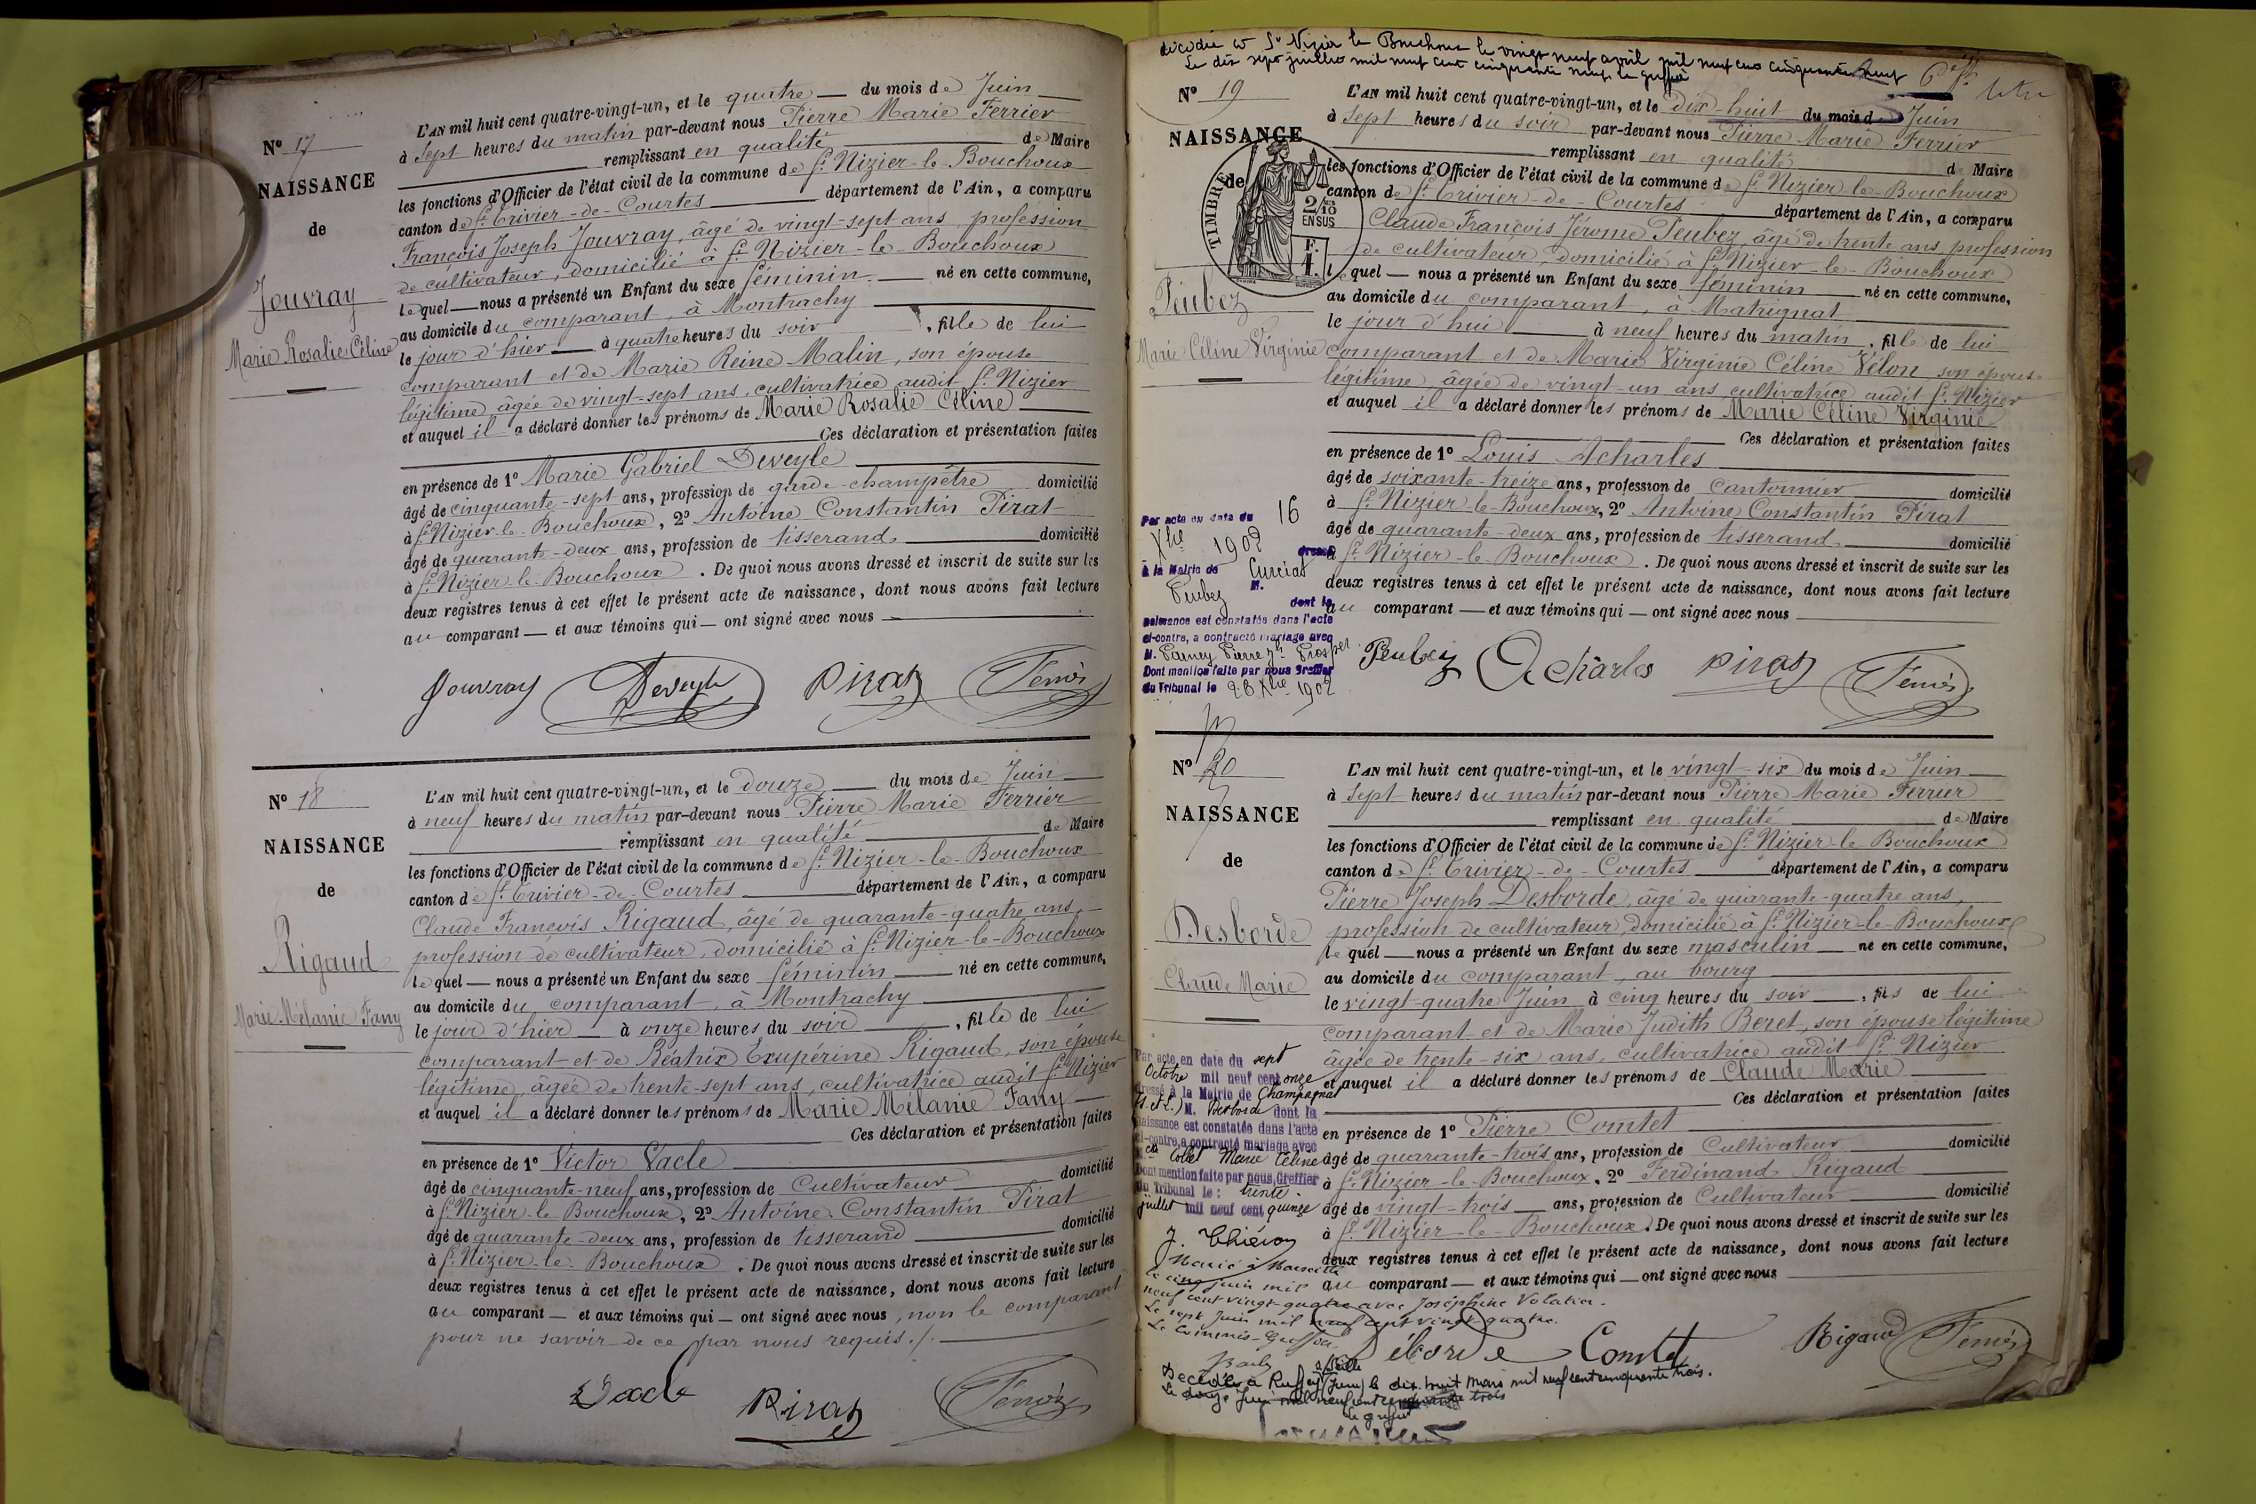 N° 17
NAISSANCE
de
Jouvray
Marie Rosalie Céline
L'AN mil huit cent quatre-vingt-un, et le quatre du mois de Juin
à Sept heures du matin par-devant nous Pierre Marie Ferrier
remplissant en qualité de Maire
les fonctions d'Officier de l'état civil de la commune de St Nizier-le-Bouchoux
canton de St Trivier-de-Courtes département de l'Ain, a comparu
François Joseph Jouvray, âgé de vingt-sept ans, profession
de cultivateur, domicilié à St Nizier-le-Bouchoux
lequel — nous a présenté un Enfant du sexe féminin né en cette commune,
au domicile du comparant, à Montrachy
le jour d'hier à quatre heures du soir, fille de lui
comparant et de Marie Reine Malin, son épouse
légitime âgée de vingt-sept ans, cultivatrice audit St Nizier
et auquel il a déclaré donner les prénoms de Marie Rosalie Céline
Ces déclaration et présentation faites
en présence de 1° Marie Gabriel Deveyle
âgé de cinquante-sept ans, profession de garde-champêtre domicilié
à St Nizier-le-Bouchoux, 2° Antoine Constantin Pirat
âgé de quarante-deux ans, profession de tisserand domicilié
à St Nizier-le-Bouchoux. De quoi nous avons dressé et inscrit de suite sur les
deux registres tenus à cet effet le présent acte de naissance, dont nous avons fait lecture
au comparant — et aux témoins qui — ont signé avec nous
Jouvray Deveyle Pirat
N° 18
NAISSANCE
de
Rigaud
Marie Mélanie Fany
L'AN mil huit cent quatre-vingt-un, et le douze du mois de Juin
à neuf heures du matin par-devant nous Pierre Marie Ferrier
remplissant en qualité de Maire
les fonctions d'Officier de l'état civil de la commune de St Nizier-le-Bouchoux
canton de St Trivier-de-Courtes département de l'Ain, a comparu
Claude François Rigaud, âgé de quarante-quatre ans,
profession de cultivateur, domicilié à St Nizier-le-Bouchoux
lequel — nous a présenté un Enfant du sexe féminin né en cette commune,
au domicile du comparant, à Montrachy
le jour d'hier à onze heures du soir, fille de lui
comparant et de Béatrix Exupérine Rigaud, son épouse
légitime, âgée de trente-sept ans, cultivatrice audit St Nizier
et auquel il a déclaré donner les prénoms de Marie Mélanie Fany
Ces déclaration et présentation faites
en présence de 1° Victor Vacle
âgé de cinquante-neuf ans, profession de Cultivateur domicilié
à St Nizier-le-Bouchoux, 2° Antoine Constantin Pirat
âgé de quarante-deux ans, profession de tisserand domicilié
à St Nizier-le-Bouchoux. De quoi nous avons dressé et inscrit de suite sur les
deux registres tenus à cet effet le présent acte de naissance, dont nous avons fait lecture
au comparant — et aux témoins qui — ont signé avec nous, non le comparant
pour ne savoir de ce par nous requis./.
Vacle Pirat
décédée à St Nizier le Bouchoux le vingt neuf avril mil neuf cent cinquante neuf
Le dix sept juillet mil neuf cent cinquante neuf le greffier
N° 19
NAISSANCE
de
TIMBRE
2/10
EN SUS
F.
1.
Peubez
Marie Céline Virginie
L'AN mil huit cent quatre-vingt-un, et le dix-huit du mois de Juin
à Sept heures du soir par-devant nous Pierre Marie Ferrier
remplissant en qualité de Maire
les fonctions d'Officier de l'état civil de la commune de St Nizier-le-Bouchoux
canton de St Trivier-de-Courtes département de l'Ain, a comparu
Claude François Jérome Peubez, âgé de trente ans, profession
de cultivateur domicilié à St Nizier-le-Bouchoux
lequel — nous a présenté un Enfant du sexe féminin né en cette commune,
au domicile du comparant, à Matrignat
le jour d'hui à neuf heures du matin, fille de lui
comparant et de Marie Virginie Céline Vélon son épouse
légitime, âgée de vingt-un ans, cultivatrice audit St Nizier
et auquel il a déclaré donner les prénoms de Marie Céline Virginie
Ces déclaration et présentation faites
en présence de 1° Louis Acharles
âgé de soixante-treize ans, profession de Cantonnier domicilié
à St Nizier-le-Bouchoux, 2° Antoine Constantin Pirat
âgé de quarante-deux ans, profession de tisserand domicilié
à St Nizier-le-Bouchoux. De quoi nous avons dressé et inscrit de suite sur les
deux registres tenus à cet effet le présent acte de naissance, dont nous avons fait lecture
au comparant — et aux témoins qui — ont signé avec nous
Par acte en date du 16
Xbre 1902 dressé
à la Mairie de Curciat
M. Peubez dont la
naissance est constatée dans l'acte
ci-contre, a contracté mariage avec
M. Pierre Prosper
Dont mention faite par nous Greffier
du Tribunal le 28 Xbre 1902
Peubez Acharles Pirat
N° 20
NAISSANCE
de
Desborde
Claude Marie
L'AN mil huit cent quatre-vingt-un, et le vingt-six du mois de Juin
à Sept heures du matin par-devant nous Pierre Marie Ferrier
remplissant en qualité de Maire
les fonctions d'Officier de l'état civil de la commune de St Nizier-le-Bouchoux
canton de St Trivier-de-Courtes département de l'Ain, a comparu
Pierre Joseph Desborde, âgé de quarante-quatre ans,
profession de cultivateur, domicilié à St Nizier-le-Bouchoux
lequel — nous a présenté un Enfant du sexe masculin né en cette commune,
au domicile du comparant, au bourg
le vingt-quatre Juin à cinq heures du soir, fils de lui
comparant et de Marie Judith Beret, son épouse légitime
âgée de trente-six ans, cultivatrice audit St Nizier
et auquel il a déclaré donner les prénoms de Claude Marie
Ces déclaration et présentation faites
en présence de 1° Pierre Comtet
âgé de quarante-trois ans, profession de Cultivateur domicilié
à St Nizier-le-Bouchoux, 2° Ferdinand Rigaud
âgé de vingt-trois ans, profession de Cultivateur domicilié
à St Nizier-le-Bouchoux. De quoi nous avons dressé et inscrit de suite sur les
deux registres tenus à cet effet le présent acte de naissance, dont nous avons fait lecture
au comparant — et aux témoins qui — ont signé avec nous
Par acte en date du sept
Octobre mil neuf cent onze
dressé à la Mairie de Champagnat
(S. et L.) M. Desborde dont la
naissance est constatée dans l'acte
ci-contre, a contracté mariage avec
Collet Marie Céline
Dont mention faite par nous, Greffier
du Tribunal le : trente
juillet mil neuf cent quinze
Marié à Marseille
le cinq juin mil
neuf cent vingt-quatre avec Joséphine Volatier.
Le sept Juin mil neuf cent vingt quatre.
Le Commis-Greffier
Déborde Comtet Rigaud
Décédé à Ruffey s/Seille (Jura) le dix huit Mars mil neuf cent cinquante trois.
Le douze Juin mil neuf cent cinquante trois
Le greffier